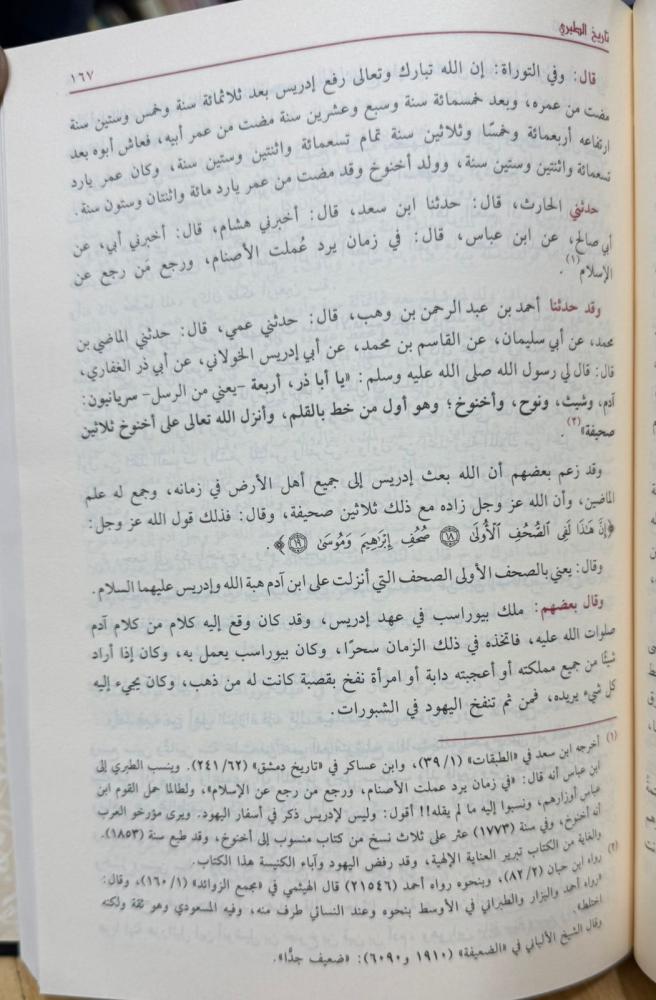 تاريخ الطبري
١٦٧
قال: وفي التوراة: إن الله تبارك وتعالى رفع إدريس بعد ثلاثمائة سنة وخمس وستين سنة
مضت من عمره، وبعد خمسمائة سنة وسبع وعشرين سنة مضت من عمر أبيه، فعاش أبوه بعد
ارتفاعه أربعمائة وخمسًا وثلاثين سنة تمام تسعمائة واثنتين وستين سنة، وكان عمر يارد
تسعمائة واثنتين وستين سنة، وولد أخنوخ وقد مضت من عمر يارد مائة واثنتان وستون سنة.
حدثني الحارث، قال: حدثنا ابن سعد، قال: أخبرني هشام، قال: أخبرني أبي، عن
أبي صالح، عن ابن عباس، قال: في زمان يرد عُملت الأصنام، ورجع مَن رجع عن
الإسلام(١).
وقد حدثنا أحمد بن عبد الرحمن بن وهب، قال: حدثني عمي، قال: حدثني الماضي بن
محمد، عن أبي سليمان، عن القاسم بن محمد، عن أبي إدريس الخولاني، عن أبي ذر الغفاري،
قال: قال لي رسول الله صلى الله عليه وسلم: «يا أبا ذر، أربعة -يعني من الرسل- سريانيون:
آدم، وشيث، ونوح، وأخنوخ؛ وهو أول من خط بالقلم، وأنزل الله تعالى على أخنوخ ثلاثين
صحيفة»(٢).
وقد زعم بعضهم أن الله بعث إدريس إلى جميع أهل الأرض في زمانه، وجمع له علم
الماضين، وأن الله عز وجل زاده مع ذلك ثلاثين صحيفة، وقال: فذلك قول الله عز وجل:
﴿إِنَّ هَٰذَا لَفِى ٱلصُّحُفِ ٱلْأُولَىٰ ١٨ صُحُفِ إِبْرَٰهِيمَ وَمُوسَىٰ ١٩﴾.
وقال: يعني بالصحف الأولى الصحف التي أنزلت على ابن آدم هبة الله وإدريس عليهما السلام.
وقال بعضهم: ملك بيوراسب في عهد إدريس، وقد كان وقع إليه كلام من كلام آدم
صلوات الله عليه، فاتخذه في ذلك الزمان سحرًا، وكان بيوراسب يعمل به، وكان إذا أراد
شيئًا من جميع مملكته أو أعجبته دابة أو امرأة نفخ بقصبة كانت له من ذهب، وكان يجيء إليه
كل شيء يريده، فمن ثم تنفخ اليهود في الشبورات.
(١) أخرجه ابن سعد في «الطبقات» (٣٩/١)، وابن عساكر في «تاريخ دمشق» (٢٤١/٦٢). وينسب الطبري إلى
ابن عباس أنه قال: «في زمان يرد عملت الأصنام، ورجع من رجع عن الإسلام»، ولطالما حمل القوم ابن
عباس أوزارهم، ونسبوا إليه ما لم يقله!! أقول: وليس لإدريس ذكر في أسفار اليهود. ويرى مؤرخو العرب
أنه أخنوخ، وفي سنة (١٧٧٣) عثر على ثلاث نسخ من كتاب منسوب إلى أخنوخ، وقد طبع سنة (١٨٥٣).
والغاية من الكتاب تبرير العناية الإلهية، وقد رفض اليهود وآباء الكنيسة هذا الكتاب.
(٢) رواه ابن حبان (٨٢/٢)، وبنحوه رواه أحمد (٢١٥٤٦) قال الهيثمي في «مجمع الزوائد» (١٦٠/١)، وقال:
«رواه أحمد والبزار والطبراني في الأوسط بنحوه وعند النسائي طرف منه، وفيه المسعودي وهو ثقة ولكنه
اختلط».
وقال الشيخ الألباني في «الضعيفة» (١٩١٠ و٦٠٩٠): «ضعيف جدًّا».